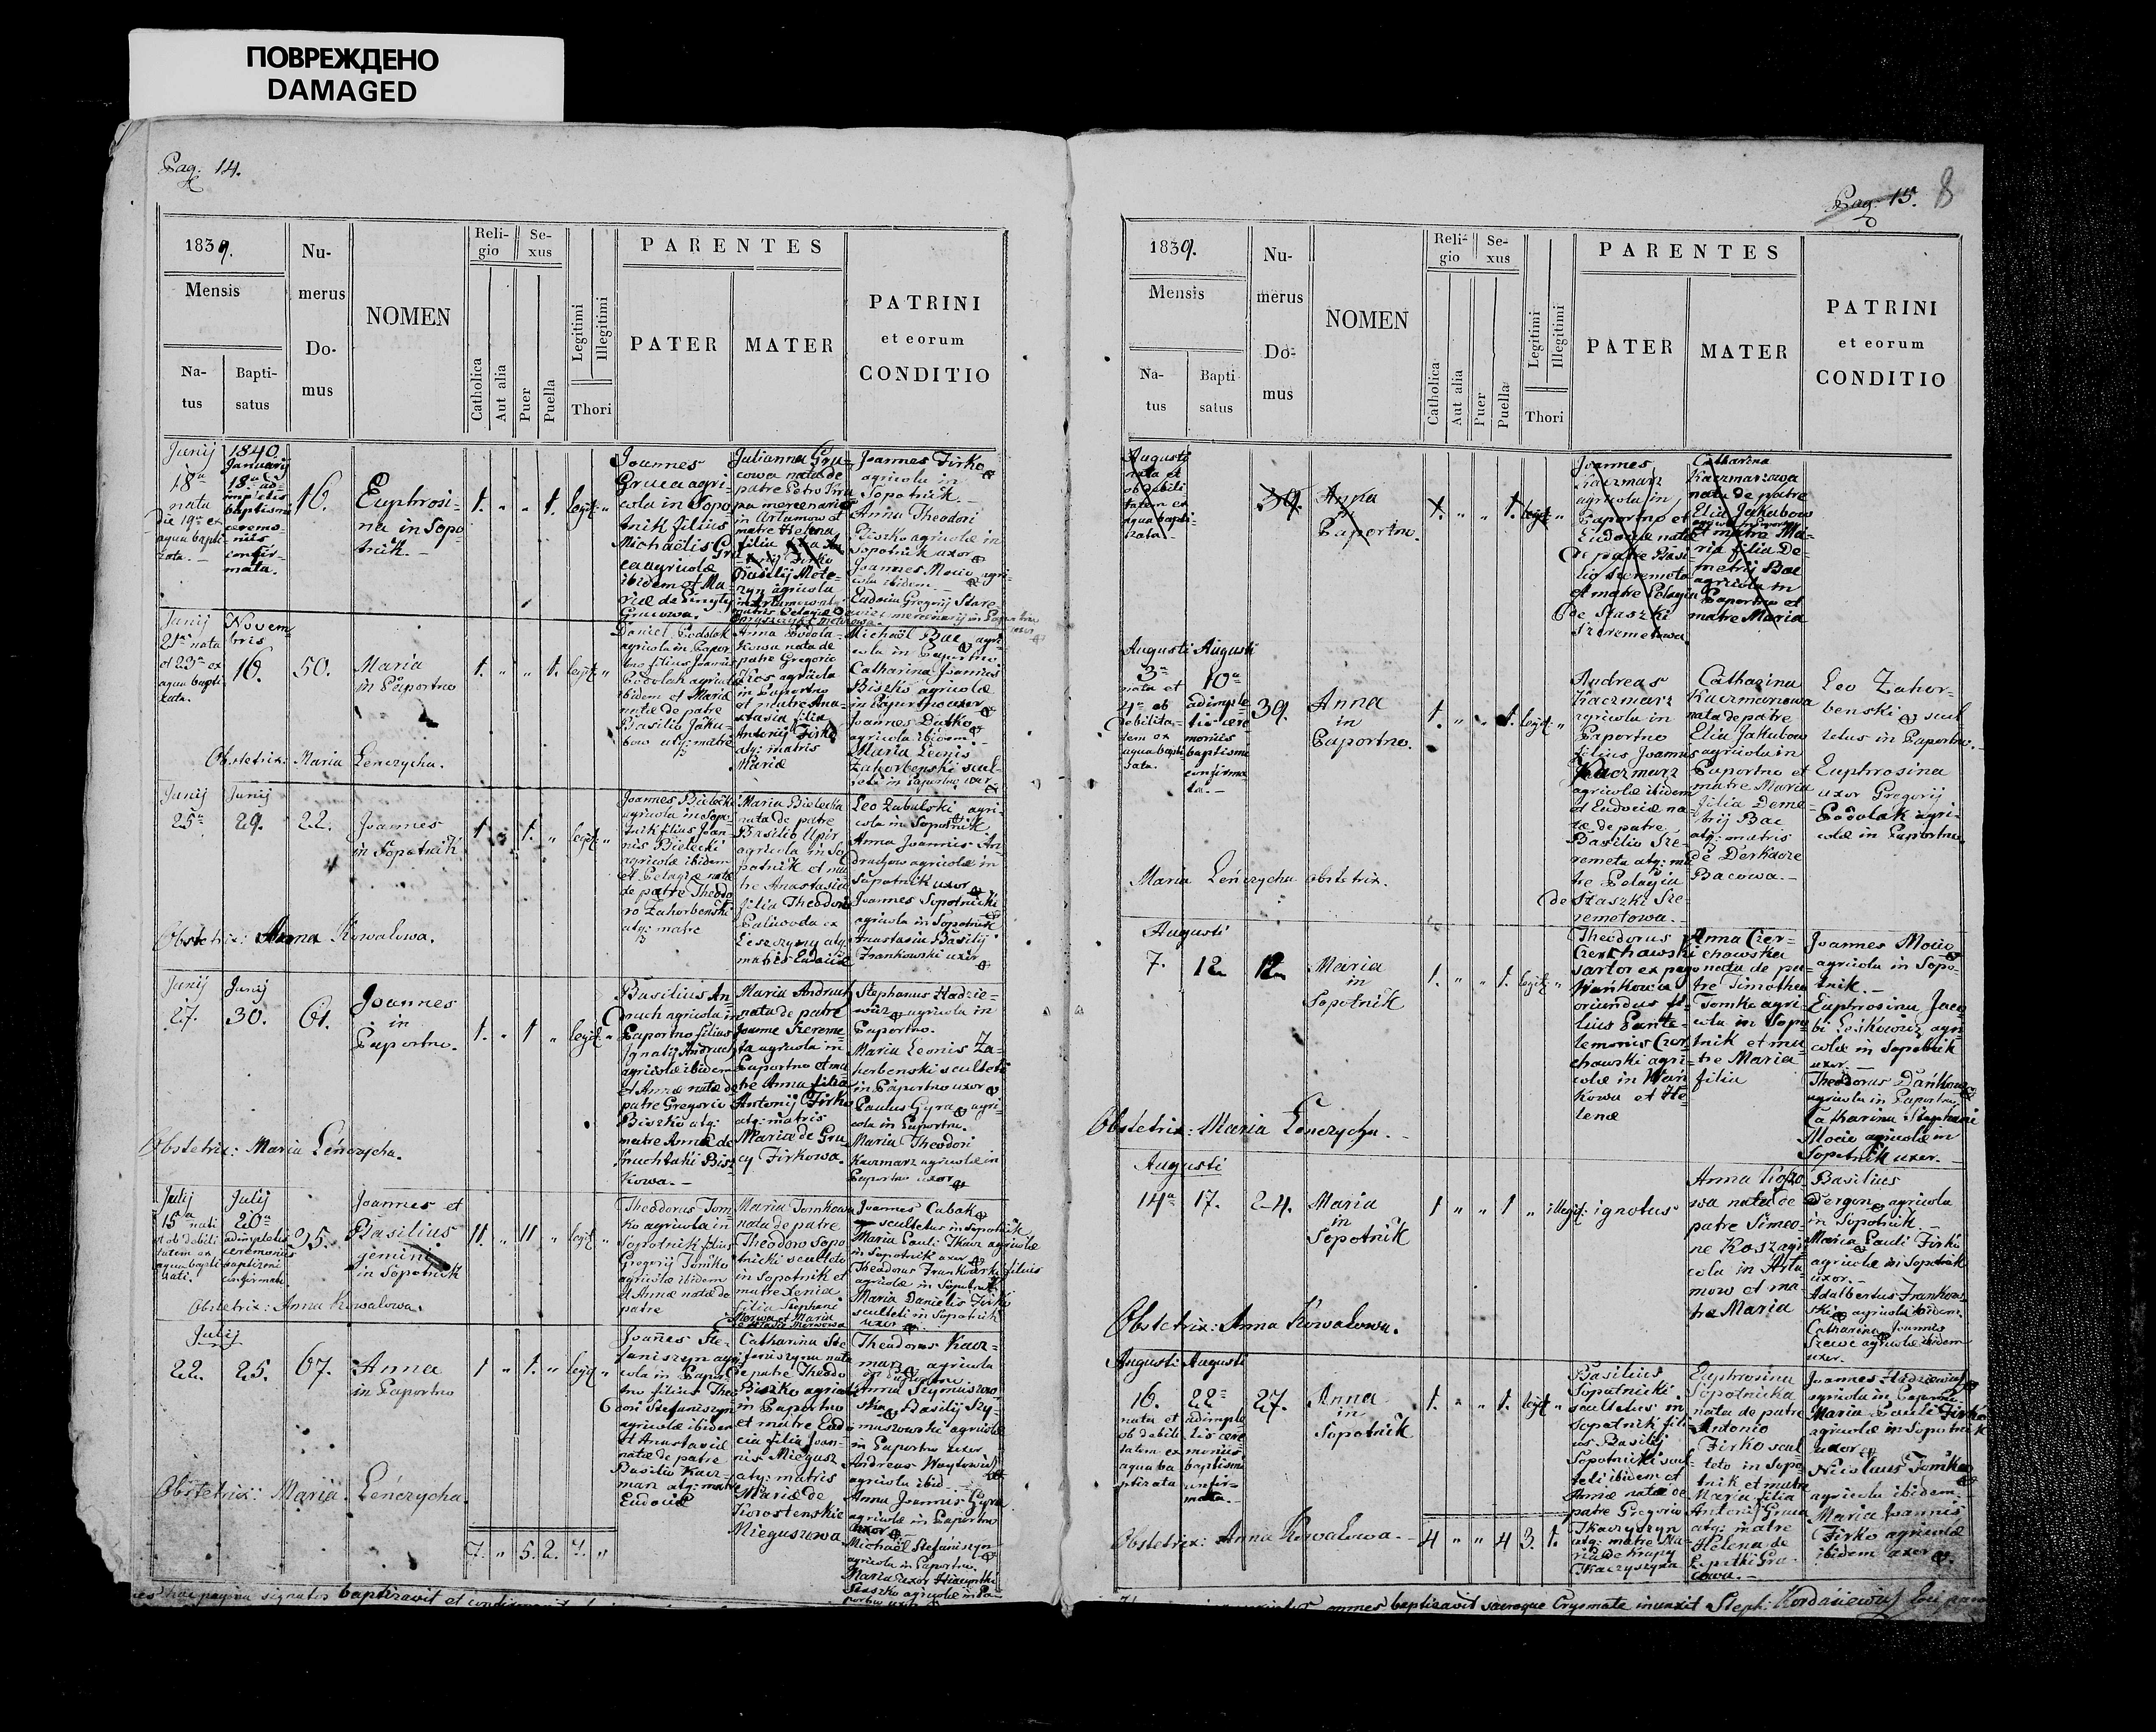 ПОВРЕЖДЕНО
DAMAGED
Pag: 14.
1839.
Mensis
Na-
tus
Bapti-
satus
Nu-
merus
Do-
mus
NOMEN
Reli-
gio
Catholica
Aut alia
Se-
xus
Puer
Puella
Legitimi
Illegitimi
Thori
PARENTES
PATER
MATER
PATRINI
et eorum
CONDITIO
Junij
18a
nata
aqua bapti-
zata.
1840
Januarij
18a
baptismi
ceremo-
niis
confir-
mata.
16.
Euphrosi-
na in Sopo
tnik.
1. " " 1. legit: "
Joannes
Gruca agri-
cola in Sopo
tnik filius
Michaëlis
agricolæ
ibidem et Ma
riæ
Grucowa.
Julianna Gru-
cowa nata de
patre Petro
mercenario
in Artamow et
matre Helena
filia
Basilij
agricola
Joannes Firko
agricola in
Sopotnik.
Anna Theodori
Biszko agricolæ in
Sopotnik uxor
Joannes Mocio agri-
cola ibidem
Eudocia Gregorij
Junij
21a nata
et 23a ex
aqua bapti
zata.
Novem
bris
16.
50.
Maria
in Paportno
1. " " 1. legit: "
Daniel Podolak
agricola in Papor
tno filius Joannis
Podolak agricolæ
ibidem et Maria
natæ de patre
Basilio Jaku-
bow atq: matre
Anna Podola-
kowa nata de
patre Gregorio
agricola
in Paportno
et matre Ana-
stasia filia
Antonij Firko
atq: matris
Mariæ
Michaël Bac agri-
cola in Paportno
Catharina Joannis
Biszko agricolæ
in Paportno uxor
Joannes Dutko
agricola ibidem
Maria Leonis
Zahorbenski scul-
teti in Paportno uxor
Obstetrix: Maria Leńczycha.
Junij
25a
Junij
29.
22.
Joannes
in Sopotnik
1. " 1. " legit: "
Joannes Bielecki
agricola in Sopo-
tnik filius Joan-
nis Bielecki
agricolæ ibidem
et Pelagiæ natæ
de patre Theodo
ro Zahorbenski
atq: matre
Maria Bielecka
nata de patre
Basilio Upir
agricola in So
potnik et ma
tre Anastasia
filia Theodori
Paliwoda ex
Leszczyny atq:
matris Eudociæ
Leo Zubulski agri-
cola in Sopotnik
Anna Joannis An
druchow agricolæ in
Sopotnik uxor
Joannes Sopotnicki
agricola in Sopotnik
Anastasia Basilij
Frankowski uxor
Obstetrix: Anna Kowalowa.
Junij
27.
Junij
30.
61.
Joannes
in
Paportno.
1. " 1 " legit: "
Basilius An-
druch agricola in
Paportno filius
Ignatij Andruch
agricolæ ibidem
et Annæ natæ de
patre Gregorio
Biszko atq:
matre Anna de
Maria Andruch
nata de patre
Joanne Szereme-
ta agricola in
Paportno et ma
tre Anna filia
Antonij Firko
atq: matris
Mariæ de Gru
cy Firkowa.
Stephanus Hadzie-
wicz agricola in
Paportno.
Maria Leonis Za-
horbenski sculteti
in Paportno uxor
Paulus Gyra agri-
cola in Paportno.
Maria Theodori
Kaczmarz agricolæ in
Paportno uxor
Obstetrix: Maria Leńczycha.
Julij
15a nati
et ob debili
tatem ex
aqua bapti
zati.
Julij
20a
adimpletis
ceremoniis
baptismi
confirmati
Joannes et
Basilius
gemini
in Sopotnik
11. " 11. " legit: "
Theodorus Tom
ko agricola in
Sopotnik filius
Gregorij Tomko
agricolæ ibidem
et Annæ natæ de
patre
Maria Tomkowa
nata de patre
Theodoro Sopo
tnicki sculteto
in Sopotnik et
matre Xenia
filia Stephani
Joannes Cabak
scultetus in Sopotnik
Maria Pauli Tkacz agricolæ
in Sopotnik uxor
Theodorus Frankowski filius
agricolæ in Sopotnik
Maria Danielis Firko
sculteti in Sopotnik
uxor
Obstetrix: Anna Kowalowa.
Julij
22.
25.
67.
Anna
in Paportno
1 " 1. " legit: "
Joañes Ste-
faniszyn agri
cola in Papor
tno filius Theo
dori Stefaniszyn
agricolæ ibidem
et Anastasiæ
natæ de patre
Basilio Kacz-
marz atq: matre
Eudocia
Catharina Ste
faniszyna nata
de patre Theodo
Biszko agricola
in Paportno
et matre Eudo
cia filia Joan-
nis Miegusz
atq: matris
Mariæ de
Korostenskie
Mieguszowa
Theodorus Kacz-
marz agricola
in Paportno
Anna Szymuszow-
ska Basilij Szy-
muszowski agricolæ
in Paportno uxor
Andreas Woytowicz
agricola ibid.
Anna Joannis Gyra
agricolæ in Paportno
uxor
Michaël Stefaniszyn
agricola in Paportno.
Maria uxor Hiacynthi
Staszko agricolæ in Pa-
portno uxor
Obstetrix: Maria Leńczycha.
7. " 5. 2. 7. "
hac pagina signatos baptizavit et
Pag: 15.
8
1839.
Mensis
Na-
tus
Bapti-
satus
Nu-
merus
Do-
mus
NOMEN
Reli-
gio
Catholica
Aut alia
Se-
xus
Puer
Puella
Legitimi
Illegitimi
Thori
PARENTES
PATER
MATER
PATRINI
et eorum
CONDITIO
Augusti
nata et
ob debili
tatem ex
aqua bapti-
zata
39.
Anna
Paportno.
1. " " 1. legit "
Joannes
Kaczmarz
agricola in
Paportno et
Eudociæ natæ
de patre Basi
lio Szeremeta
et matre Pelagia
de Staszki
Szeremetowa.
Catharina
Kaczmarzowa
nata de patre
Elia Jakubow
et matre Ma-
ria filia De-
metrij Bac
agricola in
Paportno et
matre Maria
Augusti
3a
nata et
4a ob
debilita-
tem ex
aqua bapti
zata.
Augusti
10a
adimple-
tis cere
moniis
baptismi
confirma
ta.
39.
Anna
in
Paportno.
1. " " 1. legit: "
Andreas
Kaczmarz
agricola in
Paportno
filius Joannis
Kaczmarz
agricolæ ibidem
et Eudociæ na-
tæ de patre
Basilio Sze-
remeta atq: ma
tre Pelagia
de Staszki Sze-
remetowa.
Catharina
Kaczmarzowa
nata de patre
Elia Jakubow
agricola in
Paportno et
matre Maria
filia Deme-
trij Bac
atq: matris
de Derkacze
Bacowa.
Leo Zahor-
benski scul
tetus in Paportno.
Euphrosina
uxor Gregorij
Podolak agri-
colæ in Paportno.
Maria Leńczycha obstetrix.
Augusti
7.
12
12
Maria
in
Sopotnik
1. " " 1. legit: "
Theodorus
Czerchowski
sartor ex pago
Wańkowa
oriundus fi-
lius Pante-
lemonis Czer-
chowski agri-
colæ in Wań
kowa et He-
lenæ
Anna Czer-
chowska
nata de pa-
tre Timotheo
Tomko agri-
cola in Sopo
tnik et ma-
tre Maria
filia
Joannes Mocio
agricola in Sopo-
tnik.
Euphrosina Jaco-
bi Leśkowicz agri-
colæ in Sopotnik
uxor.
Theodorus Dańkow
agricola in Paportno
Catharina Stephani
Mocio agricolæ in
Sopotnik uxor.
Obstetrix: Maria Leńczycha.
Augusti
14a
17.
24.
Maria
in
Sopotnik
1 " " 1 " illegit:
ignotus
Anna Koszo-
wa nata de
patre Simeo-
ne Kosz agri
cola in Arta-
mow et ma-
tre Maria
Basilius
Dergon agricola
in Sopotnik.
Maria Pauli Firko
agricolæ in Sopotnik
uxor.
Adalbertus Frankow-
ski agricola ibidem.
Catharina Joannis
Szewc agricolæ ibidem
uxor.
Obstetrix: Anna Kowalowa.
Augusti
16.
nata et
ob debili
tatem ex
aqua ba
ptizata
Augusti
22a
adimple
tis cere
moniis
baptismi
confir-
mata.
27.
Anna
in
Sopotnik
1. " " 1. legit: "
Basilius
Sopotnicki
scultetus in
Sopotnik fili
us Basilij
Sopotnicki scul
teti ibidem et
Annæ natæ de
patre Gregorio
Tkaczyszyn
atq: matre Ma
ria de Krupy
Tkaczyszyna
Euphrosina
Sopotnicka
nata de patre
Antonio
Firko scul
teto in Sopo
tnik et matre
Maria filia
Antonij Gruca
atq: matre
Helena de
Lepetki Gru-
cowa.
Joannes Hadziewicz
agricola in Paportno
Maria Pauli Firko
agricolæ in Sopotnik
uxor
Nicolaus Tomko
agricola ibidem
Maria Joannis
Firko agricolæ
ibidem uxor
Obstetrix: Anna Kowalowa.
4 " " 4 3. 1.
omnes baptizavit sacroque Crysmate inunxit Steph: Kordasiewicz